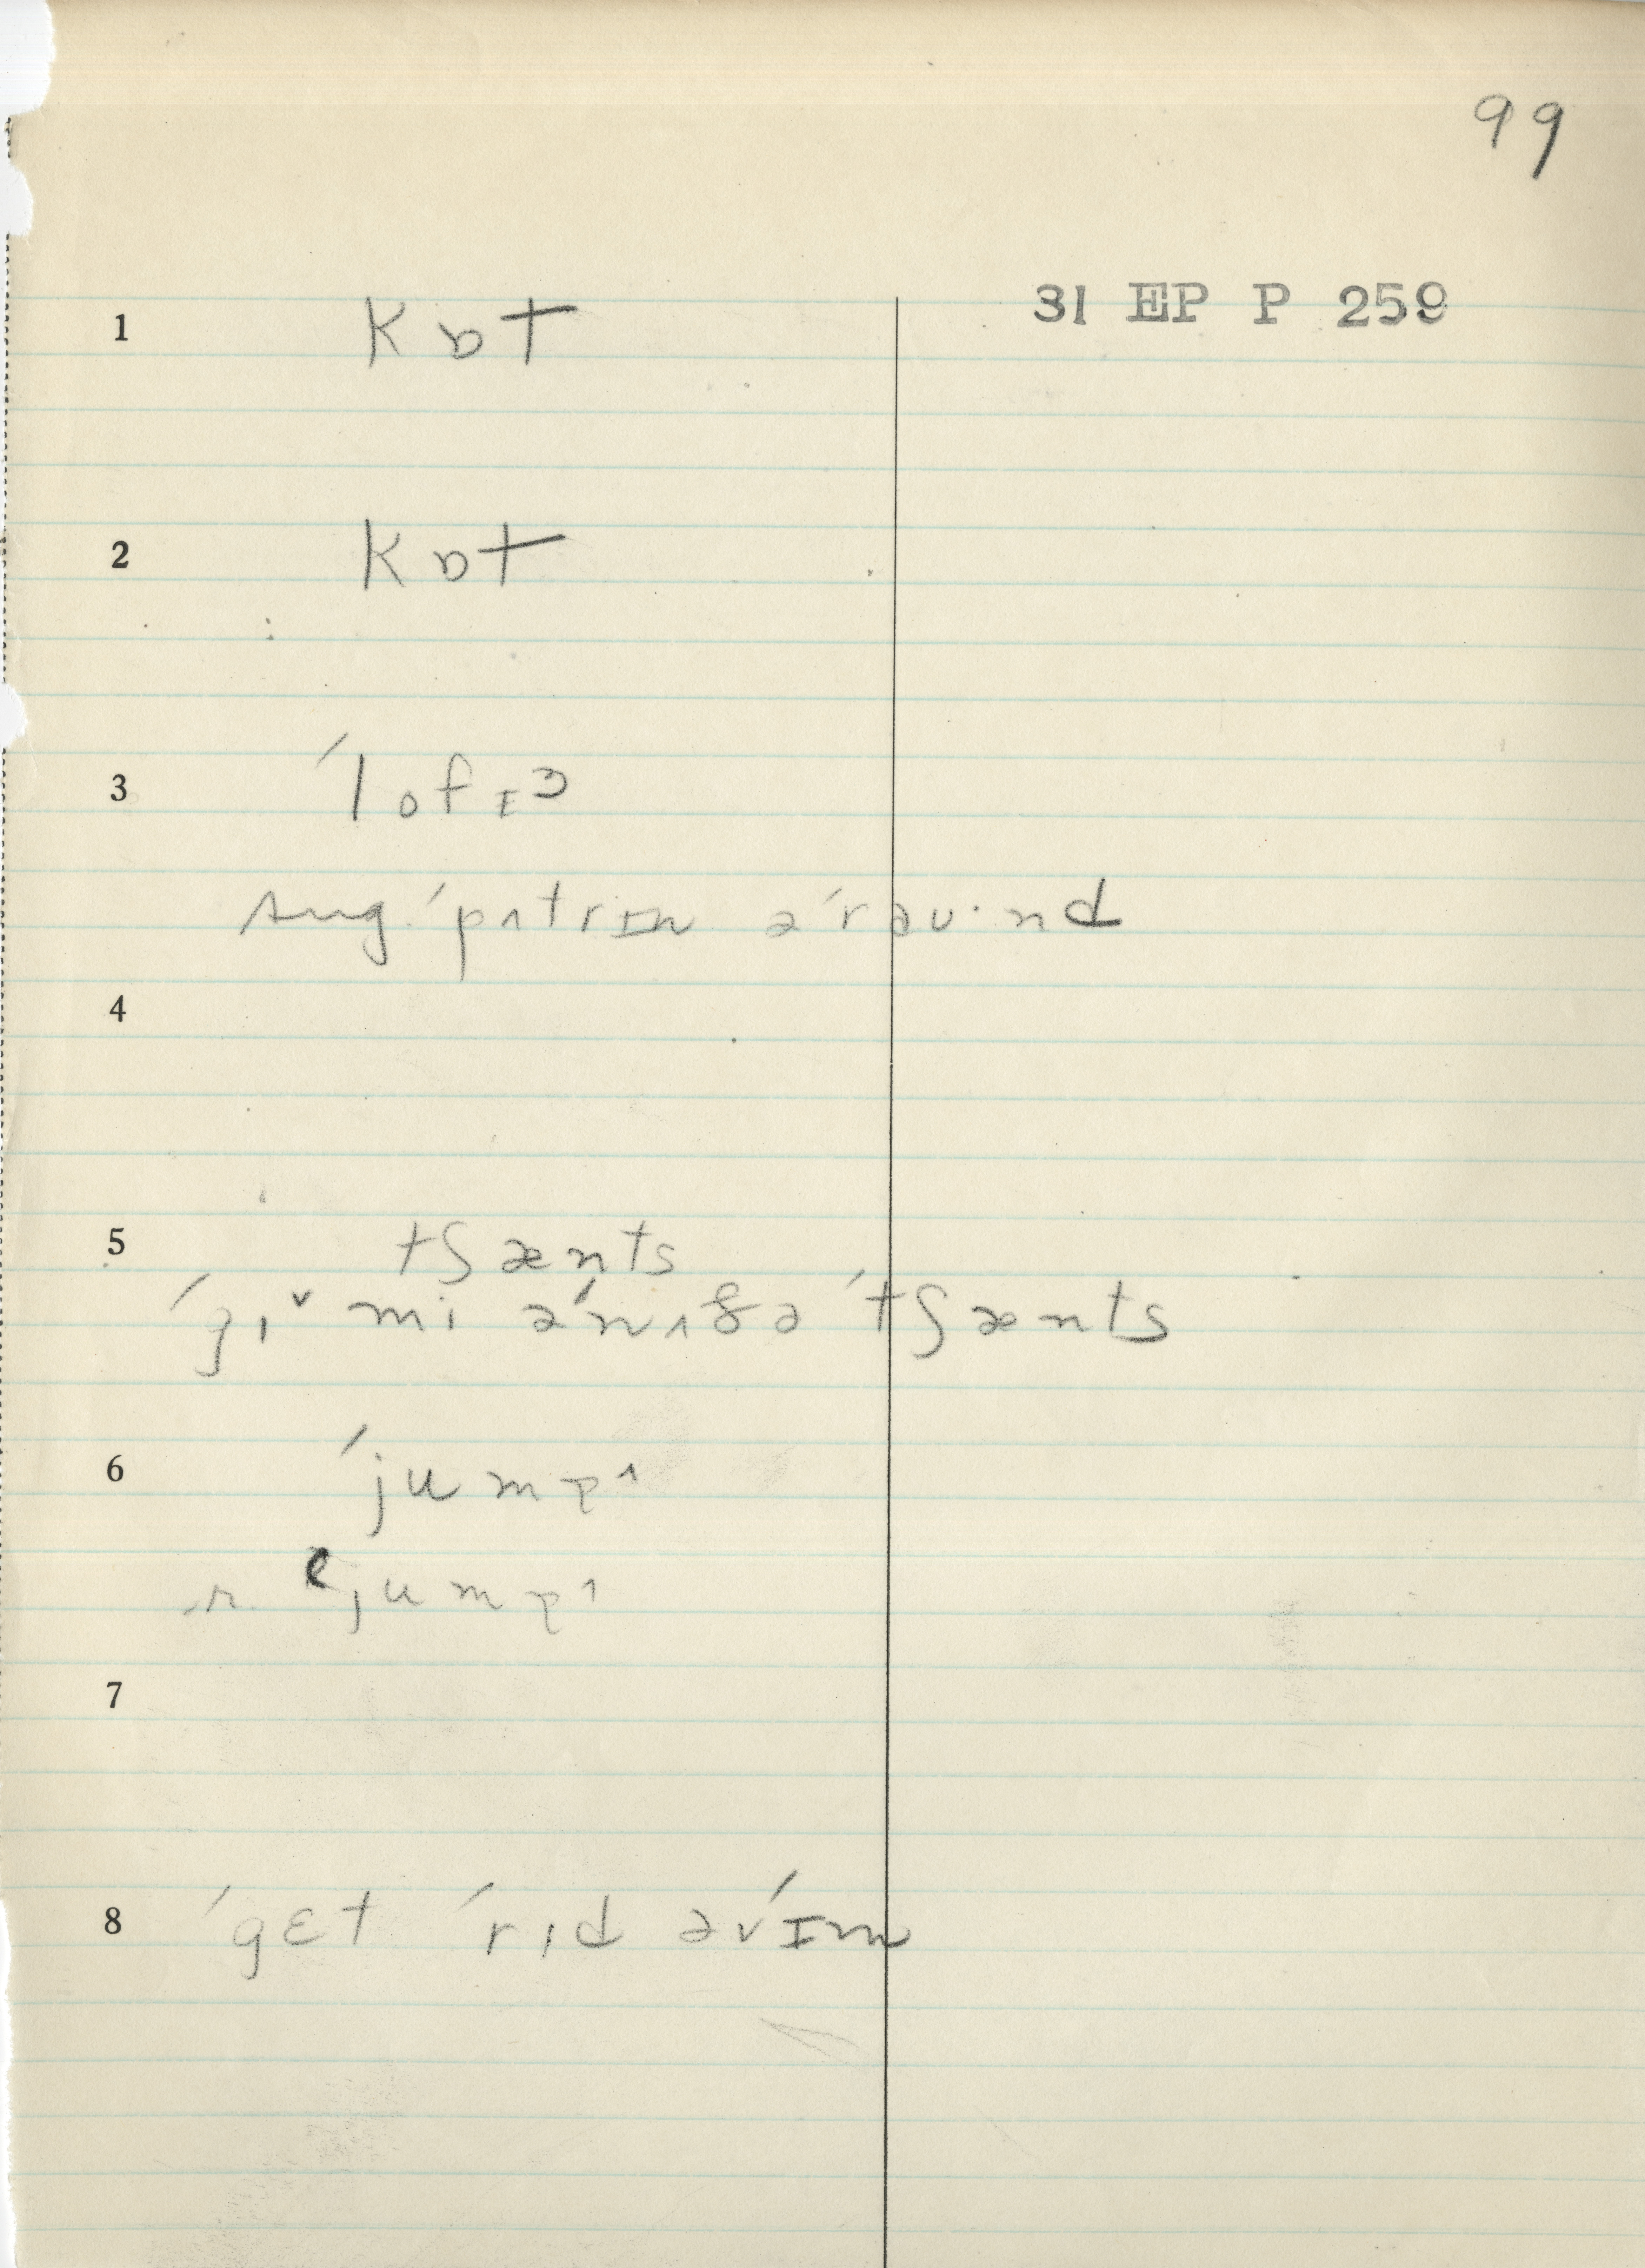 99
31 EP P 259
1 kɒt
2 kɒt
3 ˈlofɪɜ
sug. ˈpʌtrɪn əˈraʊ·nd
4
5 tʃænts
ˈgɪᵛ mi əˈnʌðə ˈtʃænts
6 ˈjumpʌ
r. ᵉjumpʌ
7
8 ˈgɛt ˈrɪd əvˈɪm